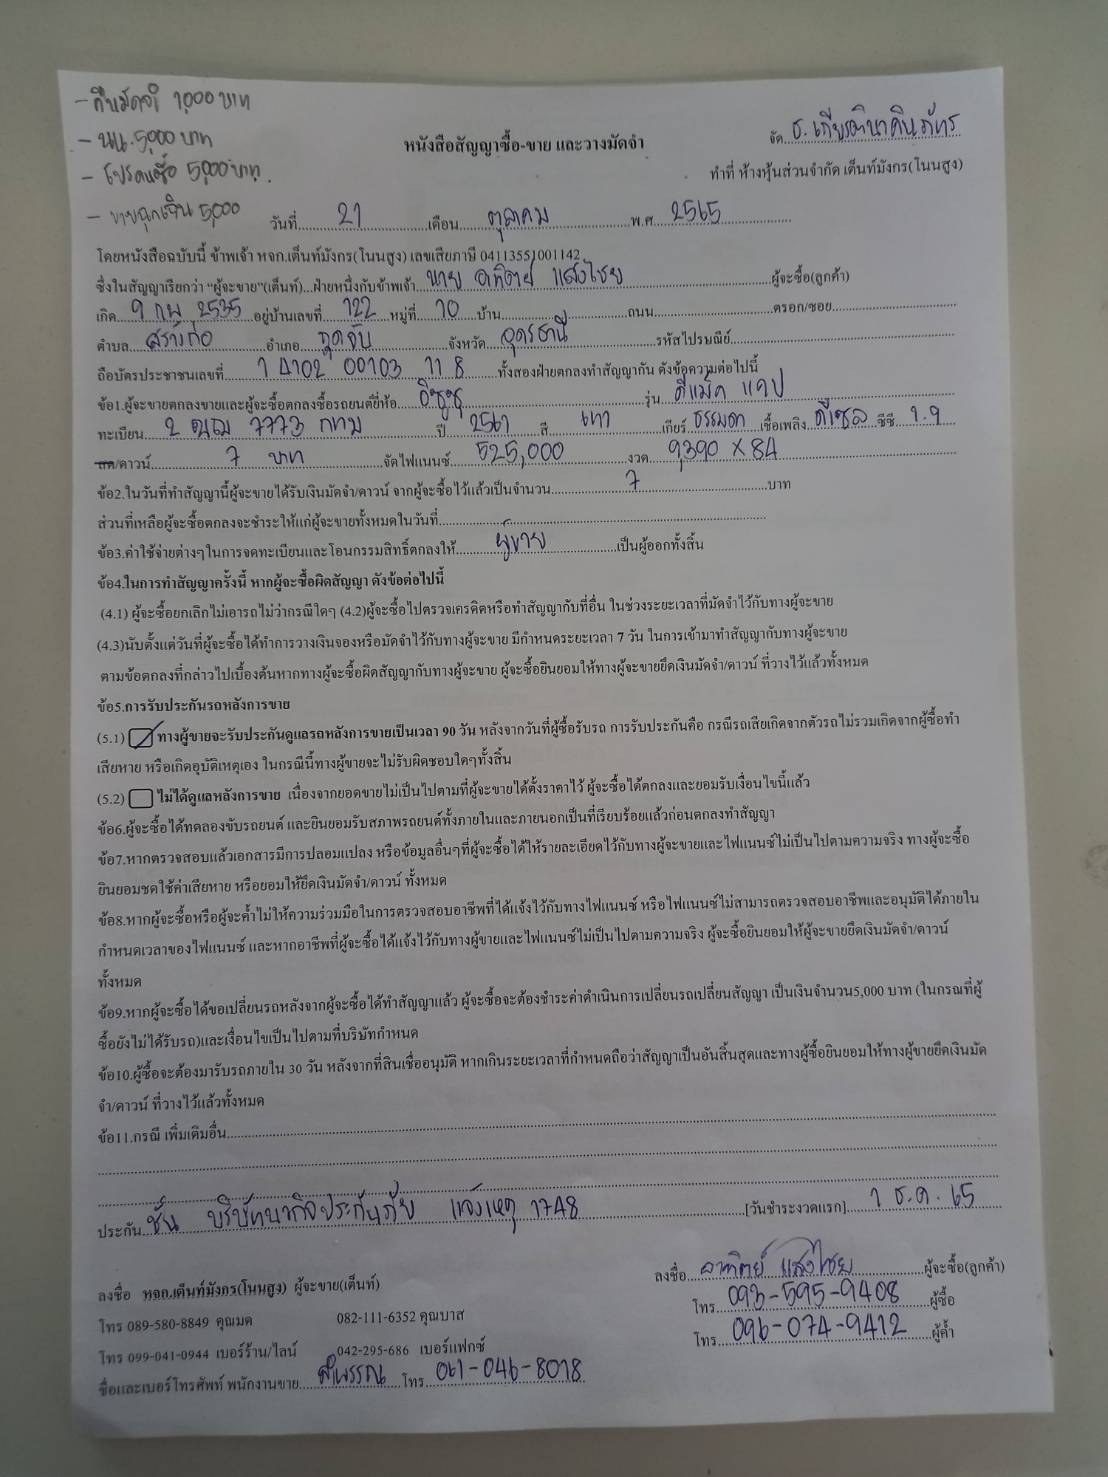 - คืนมัดจำ 1,000 บาท
- นน. 5,000 บาท
- โปรดแช๊ะ 5,000 บาท
- ขายฉุกเฉิน 5,000
จัด ธ. เกียรตินาคินภัทร
หนังสือสัญญาซื้อ-ขาย และวางมัดจำ
ทำที่ ห้างหุ้นส่วนจำกัด เต็นท์มังกร(โนนสูง)
วันที่ 21 เดือน ตุลาคม พ.ศ. 2565
โดยหนังสือฉบับนี้ ข้าพเจ้า หจก.เต็นท์มังกร(โนนสูง) เลขเสียภาษี 04113551001142
ซึ่งในสัญญาเรียกว่า "ผู้จะขาย"(เต็นท์)...ฝ่ายหนึ่งกับข้าพเจ้า นาย อาทิตย์ แสงไชย ผู้จะซื้อ(ลูกค้า)
เกิด 9 กพ 2535 อยู่บ้านเลขที่ 122 หมู่ที่ 10 บ้าน ถนน ตรอก/ซอย
ตำบล สร้างก่อ อำเภอ กุดจับ จังหวัด อุดรธานี รหัสไปรษณีย์
ถือบัตรประชาชนเลขที่ 1 4102 00103 11 8 ทั้งสองฝ่ายตกลงทำสัญญากัน ดังข้อความต่อไปนี้
ข้อ1.ผู้จะขายตกลงขายและผู้จะซื้อตกลงซื้อรถยนต์ยี่ห้อ อีซูซุ รุ่น ดีแม็ค แคป
ทะเบียน 2 ฒฌ 7773 กทม ปี 2561 สี เทา เกียร์ ธรรมดา เชื้อเพลิง ดีเซล ซีซี 1.9
สด/ดาวน์ 7 บาท จัดไฟแนนซ์ 525,000 งวด 9,390 x 84
ข้อ2.ในวันที่ทำสัญญานี้ผู้จะขายได้รับเงินมัดจำ/ดาวน์ จากผู้จะซื้อไว้แล้วเป็นจำนวน 7 บาท
ส่วนที่เหลือผู้จะซื้อตกลงจะชำระให้แก่ผู้จะขายทั้งหมดในวันที่
ข้อ3.ค่าใช้จ่ายต่างๆในการจดทะเบียนและโอนกรรมสิทธิ์ตกลงให้ ผู้ขาย เป็นผู้ออกทั้งสิ้น
ข้อ4.ในการทำสัญญาครั้งนี้ หากผู้จะซื้อผิดสัญญา ดังข้อต่อไปนี้
(4.1) ผู้จะซื้อยกเลิกไม่เอารถไม่ว่ากรณีใดๆ (4.2)ผู้จะซื้อไปตรวจเครดิตหรือทำสัญญากับที่อื่น ในช่วงระยะเวลาที่มัดจำไว้กับทางผู้จะขาย
(4.3)นับตั้งแต่วันที่ผู้จะซื้อได้ทำการวางเงินจองหรือมัดจำไว้กับทางผู้จะขาย มีกำหนดระยะเวลา 7 วัน ในการเข้ามาทำสัญญากับทางผู้จะขาย
ตามข้อตกลงที่กล่าวไปเบื้องต้นหากทางผู้จะซื้อผิดสัญญากับทางผู้จะขาย ผู้จะซื้อยินยอมให้ทางผู้จะขายยึดเงินมัดจำ/ดาวน์ ที่วางไว้แล้วทั้งหมด
ข้อ5.การรับประกันรถหลังการขาย
(5.1) ทางผู้ขายจะรับประกันดูแลรถหลังการขายเป็นเวลา 90 วัน หลังจากวันที่ผู้ซื้อรับรถ การรับประกันคือ กรณีรถเสียเกิดจากตัวรถไม่รวมเกิดจากผู้ซื้อทำ
เสียหาย หรือเกิดอุบัติเหตุเอง ในกรณีนี้ทางผู้ขายจะไม่รับผิดชอบใดๆทั้งสิ้น
(5.2) ไม่ได้ดูแลหลังการขาย เนื่องจากยอดขายไม่เป็นไปตามที่ผู้จะขายได้ตั้งราคาไว้ ผู้จะซื้อได้ตกลงและยอมรับเงื่อนไขนี้แล้ว
ข้อ6.ผู้จะซื้อได้ทดลองขับรถยนต์ และยินยอมรับสภาพรถยนต์ทั้งภายในและภายนอกเป็นที่เรียบร้อยแล้วก่อนตกลงทำสัญญา
ข้อ7.หากตรวจสอบแล้วเอกสารมีการปลอมแปลง หรือข้อมูลอื่นๆที่ผู้จะซื้อได้ให้รายละเอียดไว้กับทางผู้จะขายและไฟแนนซ์ไม่เป็นไปตามความจริง ทางผู้จะซื้อ
ยินยอมชดใช้ค่าเสียหาย หรือยอมให้ยึดเงินมัดจำ/ดาวน์ ทั้งหมด
ข้อ8.หากผู้จะซื้อหรือผู้จะค้ำไม่ให้ความร่วมมือในการตรวจสอบอาชีพที่ได้แจ้งไว้กับทางไฟแนนซ์ หรือไฟแนนซ์ไม่สามารถตรวจสอบอาชีพและอนุมัติได้ภายใน
กำหนดเวลาของไฟแนนซ์ และหากอาชีพที่ผู้จะซื้อได้แจ้งไว้กับทางผู้ขายและไฟแนนซ์ไม่เป็นไปตามความจริง ผู้จะซื้อยินยอมให้ผู้จะขายยึดเงินมัดจำ/ดาวน์
ทั้งหมด
ข้อ9.หากผู้จะซื้อได้ขอเปลี่ยนรถหลังจากผู้จะซื้อได้ทำสัญญาแล้ว ผู้จะซื้อจะต้องชำระค่าดำเนินการเปลี่ยนรถเปลี่ยนสัญญา เป็นเงินจำนวน5,000 บาท (ในกรณที่ผู้
ซื้อยังไม่ได้รับรถ)และเงื่อนไขเป็นไปตามที่บริษัทกำหนด
ข้อ10.ผู้ซื้อจะต้องมารับรถภายใน 30 วัน หลังจากที่สินเชื่ออนุมัติ หากเกินระยะเวลาที่กำหนดถือว่าสัญญาเป็นอันสิ้นสุดและทางผู้ซื้อยินยอมให้ทางผู้ขายยึดเงินมัด
จำ/ดาวน์ ที่วางไว้แล้วทั้งหมด
ข้อ11.กรณี เพิ่มเติมอื่น
ประกัน ชั้น บริษัทนวกิจประกันภัย แจ้งเหตุ 1748 [วันชำระงวดแรก] 1 ธ.ค. 65
ลงชื่อ อาทิตย์ แสงไชย ผู้จะซื้อ(ลูกค้า)
ลงชื่อ หจก.เต็นท์มังกร(โนนสูง) ผู้จะขาย(เต็นท์)
โทร 093-595-9408 ผู้ซื้อ
โทร 089-580-8849 คุณมด 082-111-6352 คุณบาส
โทร 096-074-9412 ผู้ค้ำ
โทร 099-041-0944 เบอร์ร้าน/ไลน์ 042-295-686 เบอร์แฟกซ์
ชื่อและเบอร์โทรศัพท์ พนักงานขาย ลำพรรณ โทร 061-046-8018